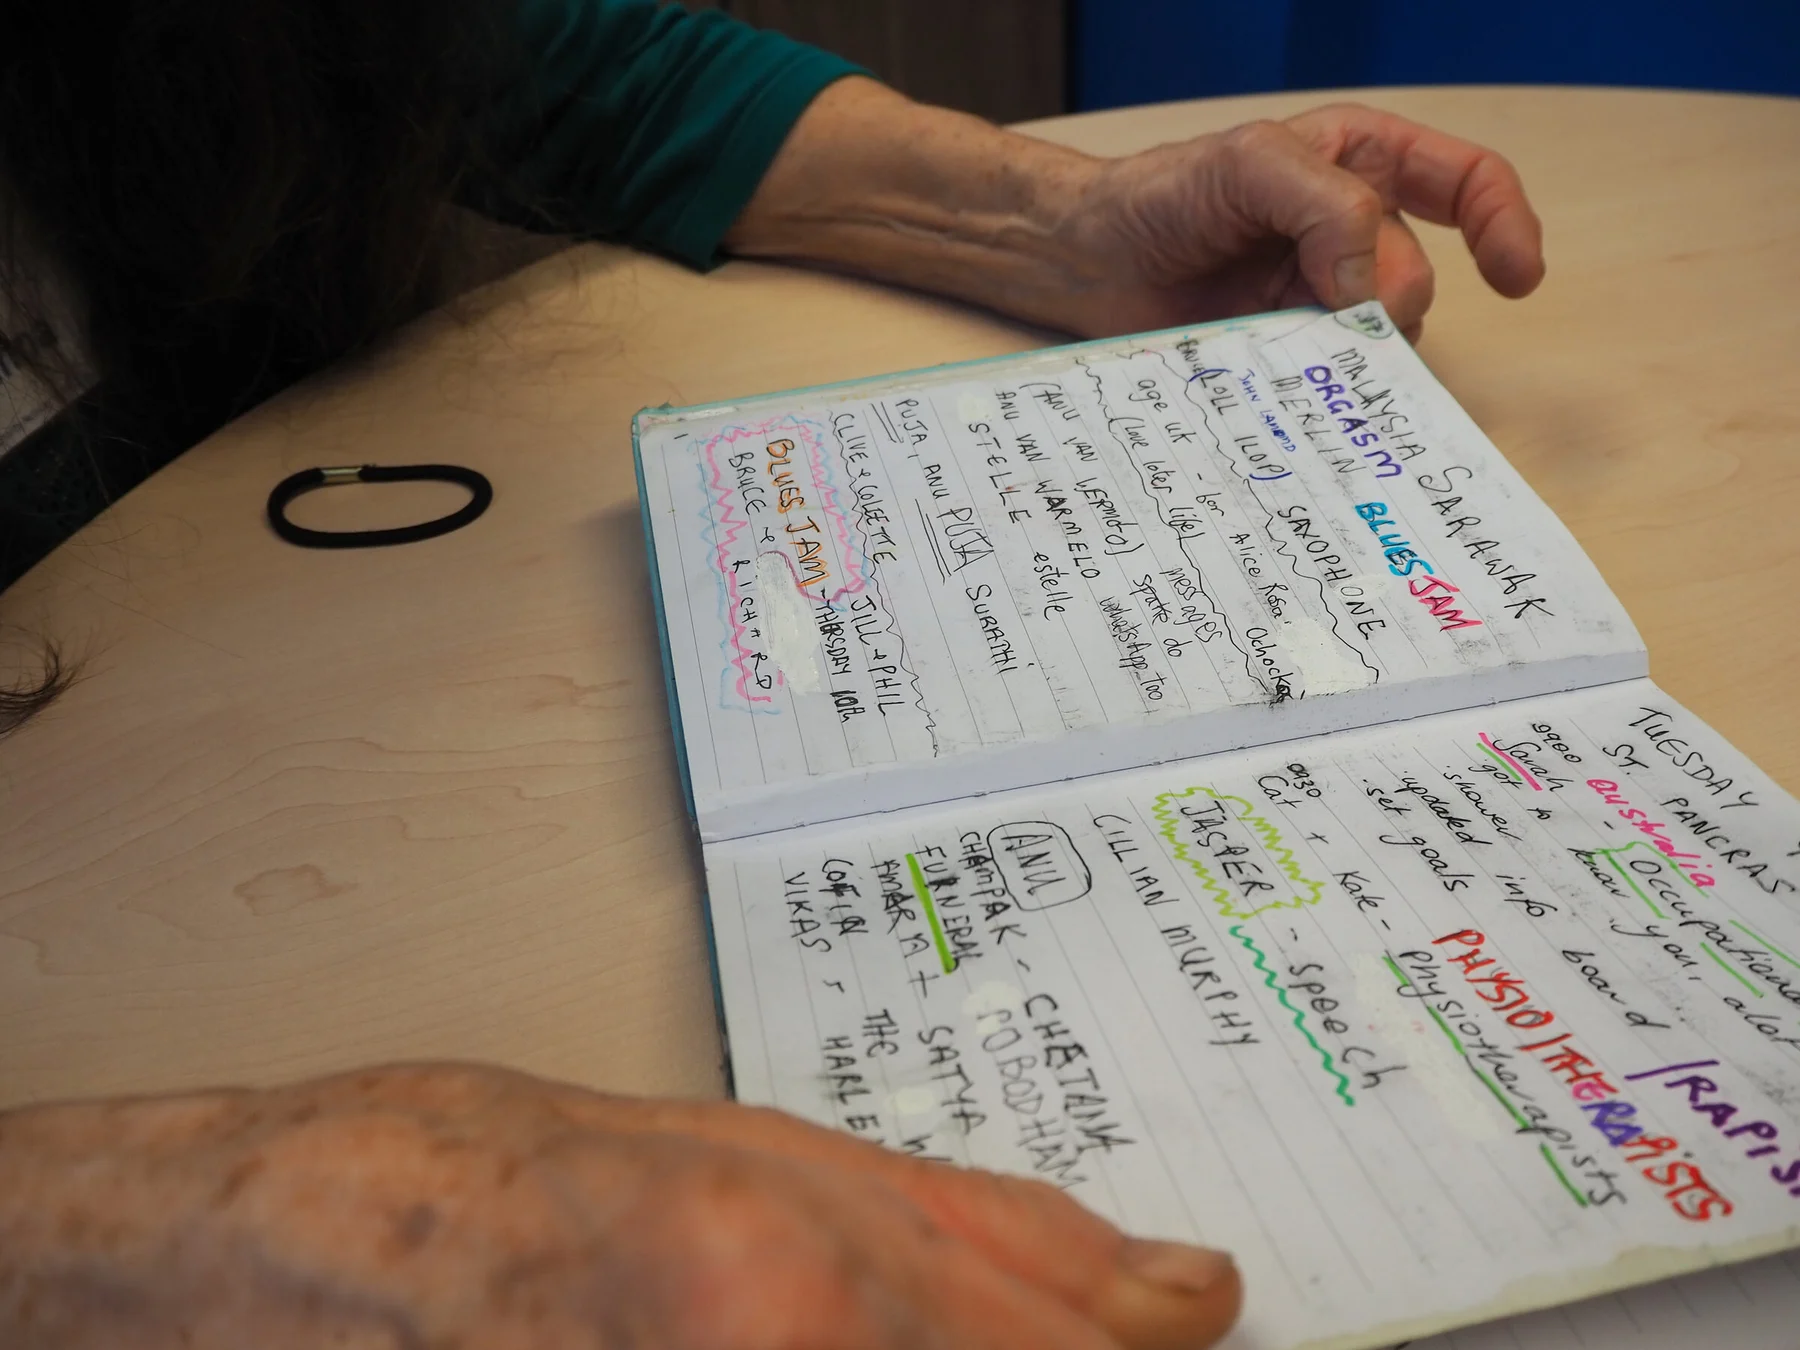 MALAYSIA SARAWAK
ORGASM BLUES JAM
MERLIN
JOHN LAMOND SAXOPHONE
(LOLL ILOP)
age uk - for Alice Rosa
(love later life) messages
(ANU VAN VERMDD) spatie do
ANU VAN WARMELO whatsApp too
STELLE estelle
PUJA, ANU PUJA SURAPHI
CLIVE + COLETTE JILL + PHIL
BLUES JAM - THURSDAY
BRUCE + RICHARD
TUESDAY
ST. PANCRAS
australia - Occupational /RAPIS
0900 Sarah to know you, alot
got shower info board
updated PHYSIO/THERAPISTS
set goals
0930 Cat + Kate - physiotherapists
JASPER - speech
CILLIAN MURPHY
ANU
CHAMPAK - CHETANA
FURNERAL POBODHAM
AMAR N + SATYA
COFFIN THE
VIKAS HARLE